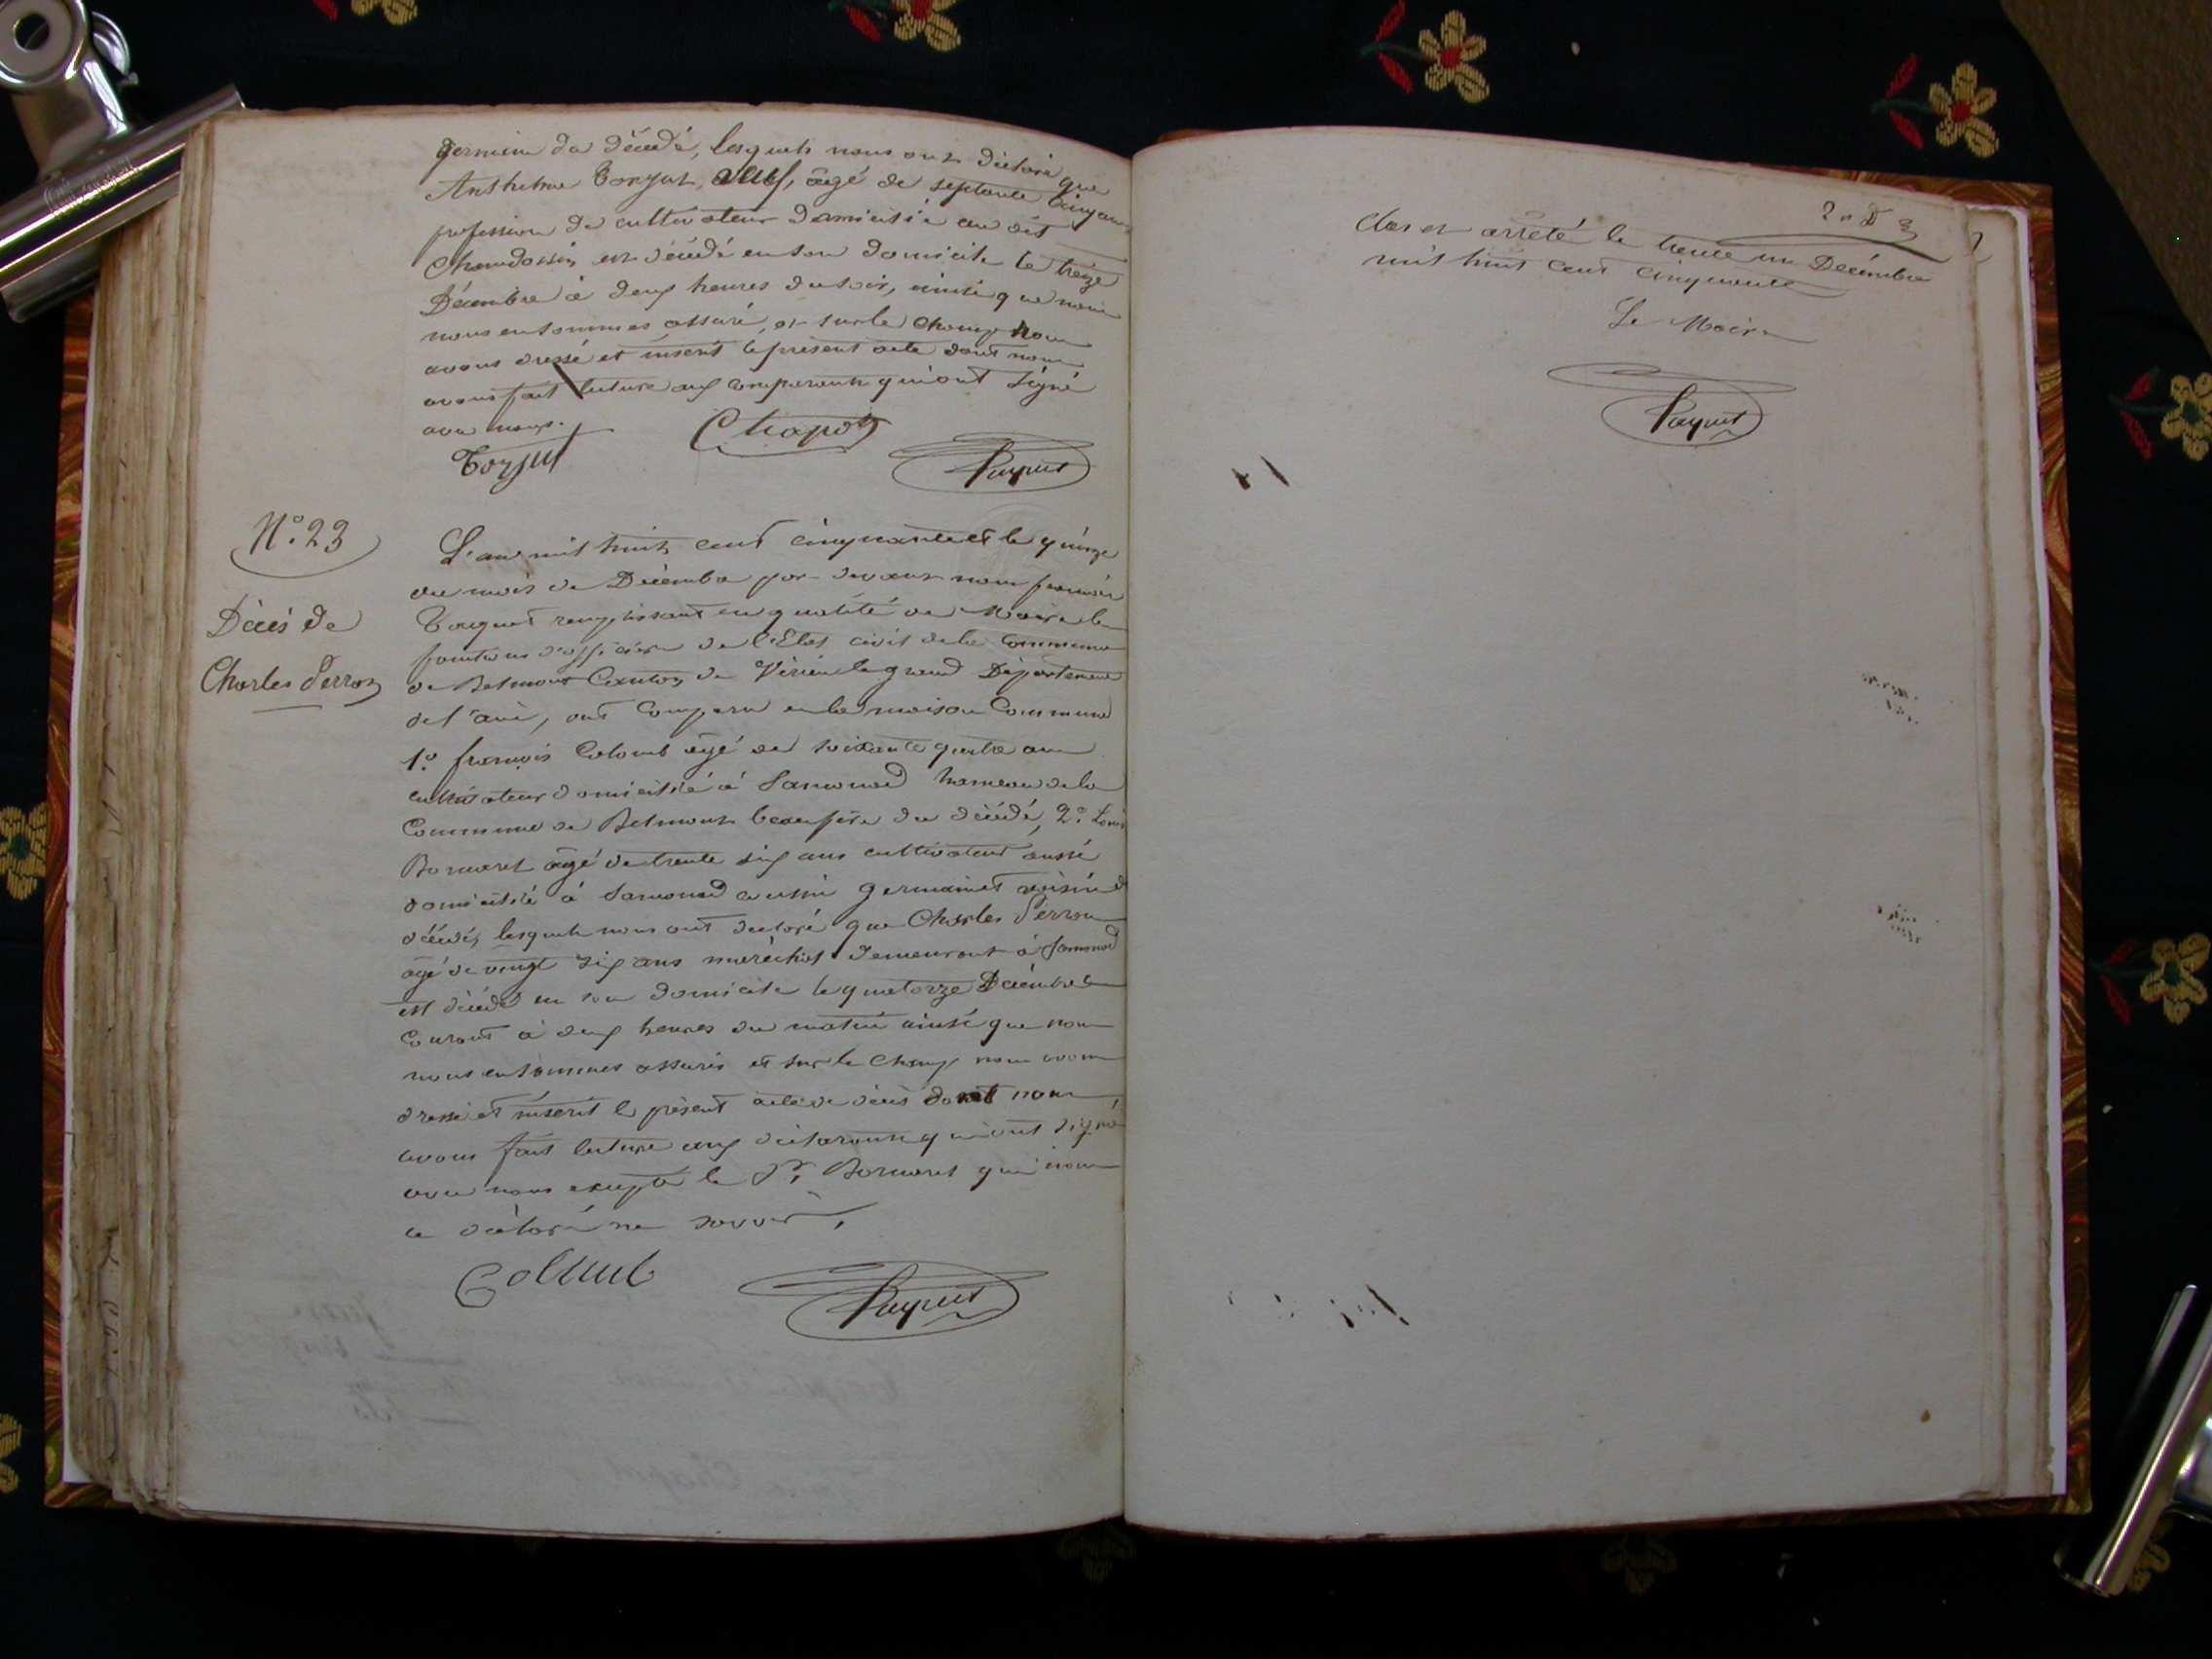 germain du décédé, lesquels nous ont déclaré que
Anthelme Torjut, veuf, âgé de septante cinq ans
profession de cultivateur domicilié au dit
est décédé en son domicile le treize
Décembre à deux heures du soir, ainsi que nous
nous en sommes assuré, et sur le champ nous
avons dressé et inscrit le présent acte dont nous
avons fait lecture aux comparants qui ont signé
avec nous.
Torjut Chapot
N.o 23
Décès de
Charles Perron
L'an mil huit cent cinquante et le quinze
du mois de Décembre par-devant nous
remplissant en qualité de Maire les
fonctions d'officier de l'Etat civil de la Commune
de Belmont Canton de Virieu le grand Département
de l'ain, ont comparu en la maison Commune
1.o françois Colomb âgé de soixante quatre ans
cultivateur domicilié à Samonod hameau de la
Commune de Belmont beau père du décédé, 2.o Louis
Bornaret âgé de trente six ans cultivateur aussi
domicilié à Samonod cousin germain et voisin du
décédé, lesquels nous ont déclaré que Charles Perron
âgé de vingt six ans maréchal demeurant à Samonod
est décédé en son domicile le quatorze Décembre
Courant à deux heures du matin ainsi que nous
nous en sommes assurés et sur le champ nous avons
dressé et inscrit le présent acte de décès dont nous
avons fait lecture aux déclarants qui ont signé
avec nous excepté le Sr. Bornaret qui nous
a déclaré ne savoir,
Colomb
Clos et arrêté le trente un Décembre
mil huit cent cinquante
Le Maire